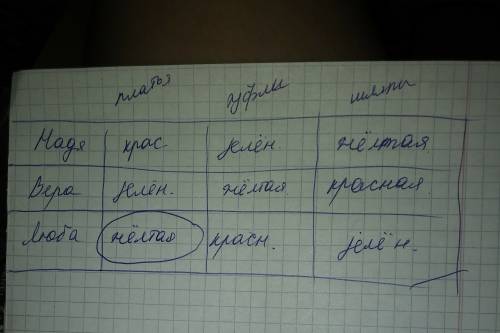 платья туфли шляпы
Надя крас. зелён жёлтая
Вера зелён. жёлтая красная
Люба жёлтая красн. зелён.